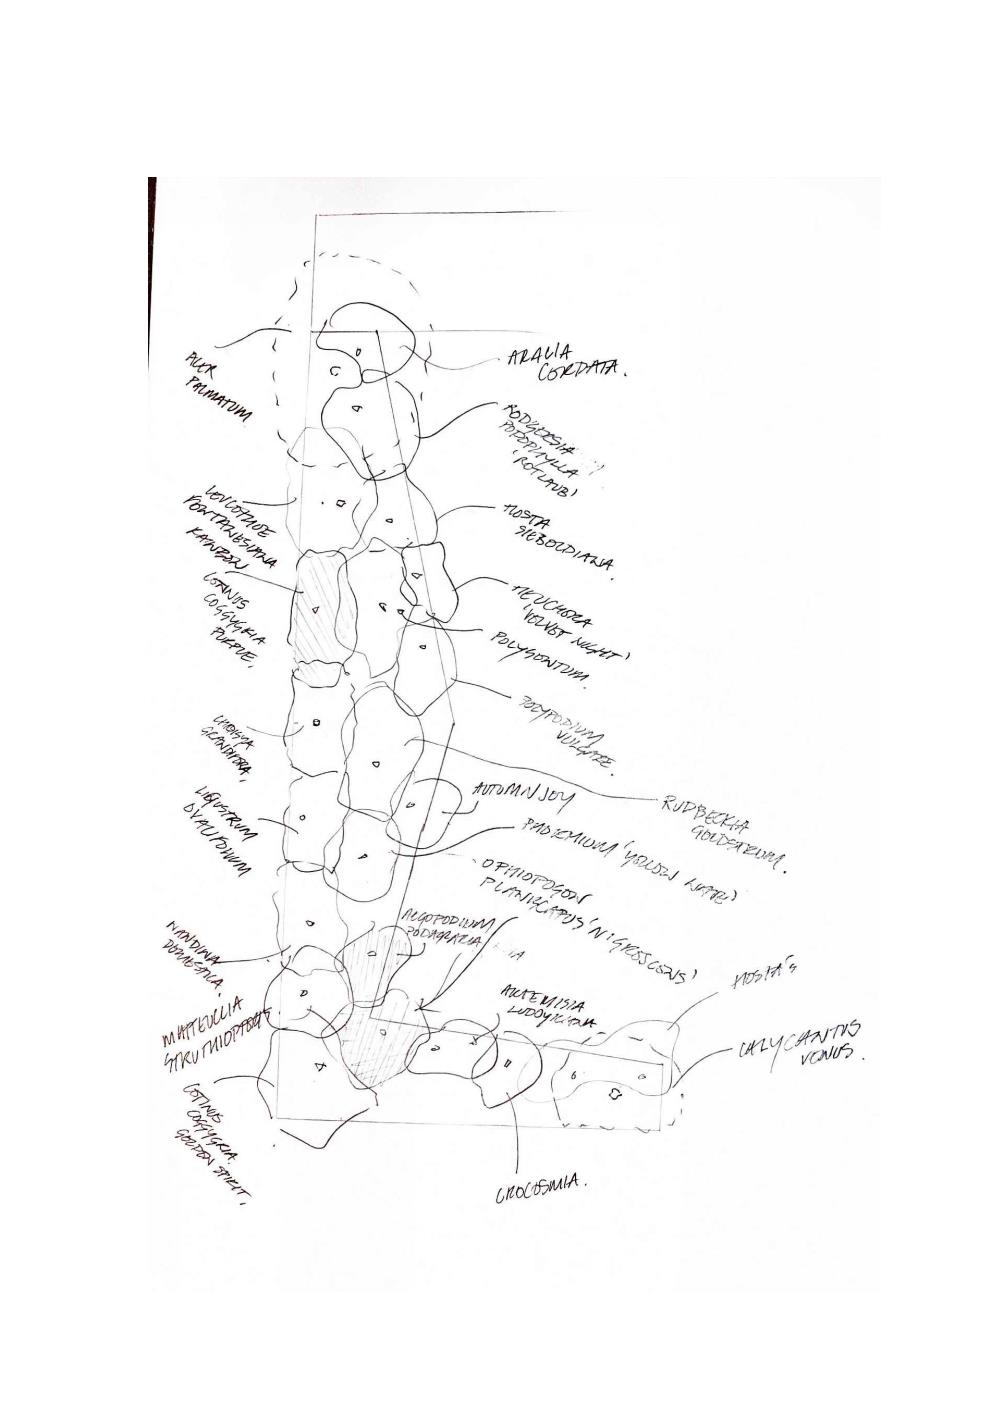 ACER
PALMATUM
ARALIA
CORDATA.
RODGERSIA
PODOPHYLLA
'ROTLAUB'
LEUCOTHOE
FONTANESIANA
RAINBOW
HOSTA
SIEBOLDIANA.
COTINUS
COGGYGRIA
PURPLE.
HEUCHERA
'VELVET NIGHT'
POLYGONTUM.
POLYPODIUM
VULGARE.
CHOISYA
GRANDIFORA.
RUDBECKIA
GOLDSTRUM.
AUTUMN JOY
LIGUSTRUM
OVALIFOLIUM
OPHIOPOGON
PLANISCAPUS 'NIGRESCENS'
AEGOPODIUM
PODAGRARIA
NANDINA
DOMESTICA.
HOSTA'S
ARTEMISIA
LUDOVICIANA.
MATTEUCCIA
STRUTHIOPTERIS.
CALYCANTUS
VENUS.
COTINUS
COGGYGRIA.
GOLDEN SPIRIT.
CROCOSMIA.